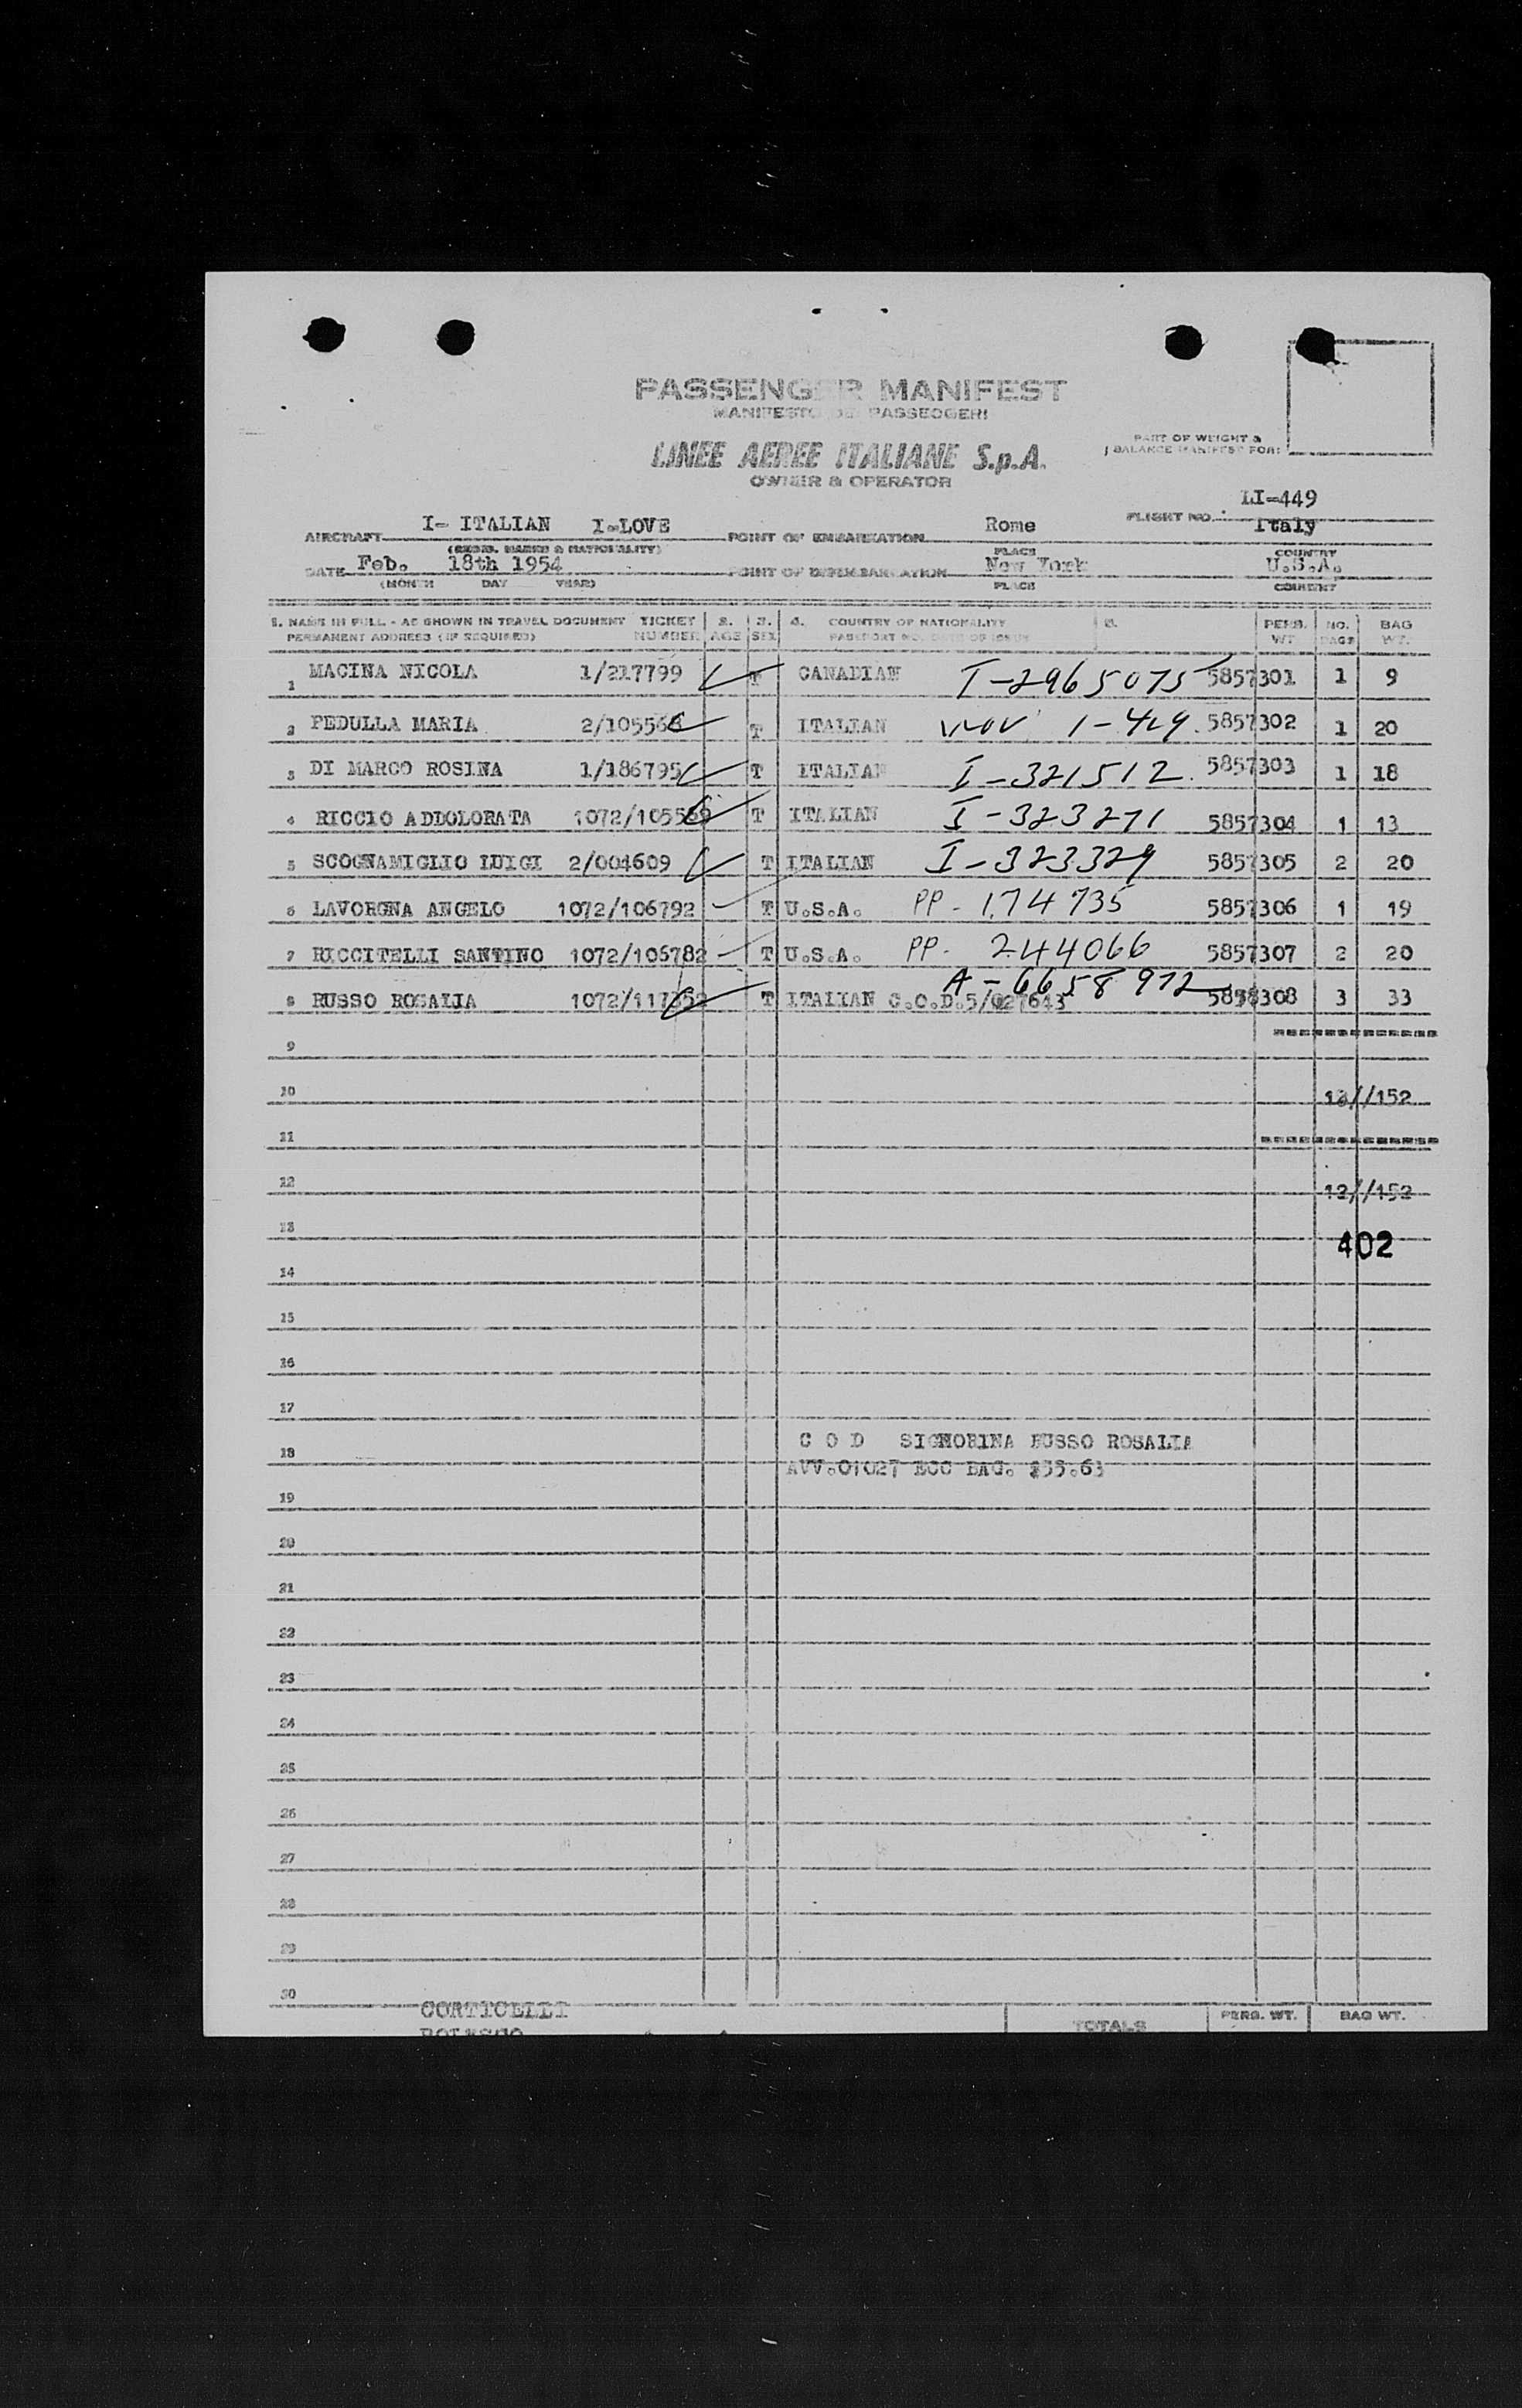 PASSENGER MANIFEST
MANIFESTO DEI PASSEGGERI
LINEE AEREE ITALIANE S.p.A.
OWNER & OPERATOR
PART OF WEIGHT &
BALANCE MANIFEST FOR:
LI-449
AIRCRAFT I- ITALIAN I-LOVE POINT OF EMBARKATION Rome FLIGHT NO. Italy
(REGIS. MARKS & NATIONALITY) PLACE COUNTRY
DATE Feb. 18th 1954 POINT OF DISEMBARKATION New York U.S.A.
(MONTH DAY YEAR) PLACE COUNTRY
1. NAME IN FULL - AS SHOWN IN TRAVEL DOCUMENT TICKET 2. 3. 4. COUNTRY OF NATIONALITY 5. PERS. NO. BAG
PERMANENT ADDRESS (IF REQUIRED) NUMBER AGE SEX PASSPORT NO. DATE OF ISSUE WT. PAGS WT.
1 MACINA NICOLA 1/217799 T CANADIAN I-2965075 5857301 1 9
2 PEDULLA MARIA 2/10556 T ITALIAN 1-429 5857302 1 20
3 DI MARCO ROSINA 1/186795 T ITALIAN I-321512 5857303 1 18
4 RICCIO ADDOLORATA 1072/105569 T ITALIAN I-323271 5857304 1 13
5 SCOGNAMIGLIO LUIGI 2/004609 T ITALIAN I-323329 5857305 2 20
6 LAVORGNA ANGELO 1072/106792 T U.S.A. PP- 174735 5857306 1 19
7 RICCITELLI SANTINO 1072/106782 T U.S.A. PP- 244066 5857307 2 20
A-6658972
8 RUSSO ROSALIA 1072/117352 T ITALIAN C.O.D.5/027643 5858308 3 33
9
10 12//152
11
12 12//152
13 402
14
15
16
17
C O D SIGNORINA RUSSO ROSALIA
18
AVV.01027 ECC BAG. $55.63
19
20
21
22
23
24
25
26
27
28
29
30 CORTICELLI
TOTALS PERS. WT. BAG WT.